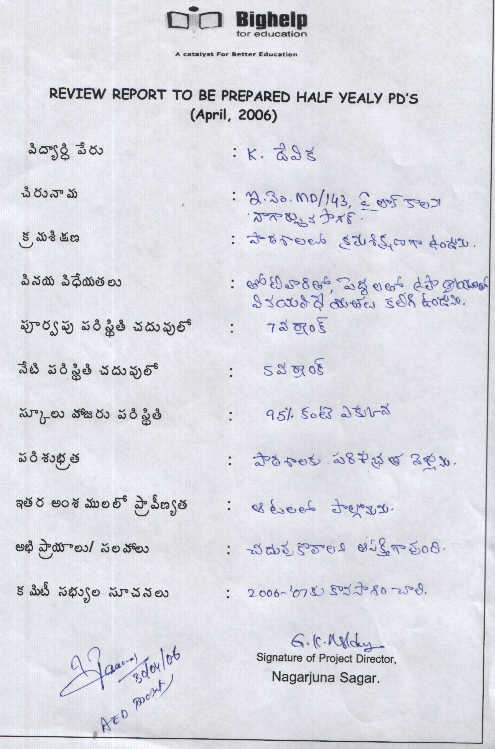 Bighelp
for education
A catalyst For Better Education
REVIEW REPORT TO BE PREPARED HALF YEALY PD'S
(April, 2006)
విద్యార్ధి పేరు : K. దేవిక
చిరునామ : ఇ.నెం. MD/143, పైలాన్ కాలని
నాగార్జున సాగర్.
క్రమశిక్షణ : పాఠశాలలో క్రమశిక్షణగా ఉండును.
వినయ విధేయతలు : తోటివారితో, పెద్దలతో ఉపాధ్యాయులతో
వినయవిధేయతలు కలిగి ఉండును.
పూర్వపు పరిస్థితి చదువులో : 7వ ర్యాంక్
నేటి పరిస్థితి చదువులో : 5వ ర్యాంక్
స్కూలు హాజరు పరిస్థితి : 95% కంటె ఎక్కువ
పరిశుభ్రత : పాఠశాలకు పరిశుభ్రతతో వెళ్లును.
ఇతర అంశములలో ప్రావీణ్యత : ఆటలలో పాల్గొనును.
అభిప్రాయాలు/ సలహాలు : చదువుకోవాలని ఆసక్తిగా వుంది.
కమిటీ సభ్యుల సూచనలు : 2006-'07కు కొనసాగించాలి.
30/04/06
Signature of Project Director,
Nagarjuna Sagar.